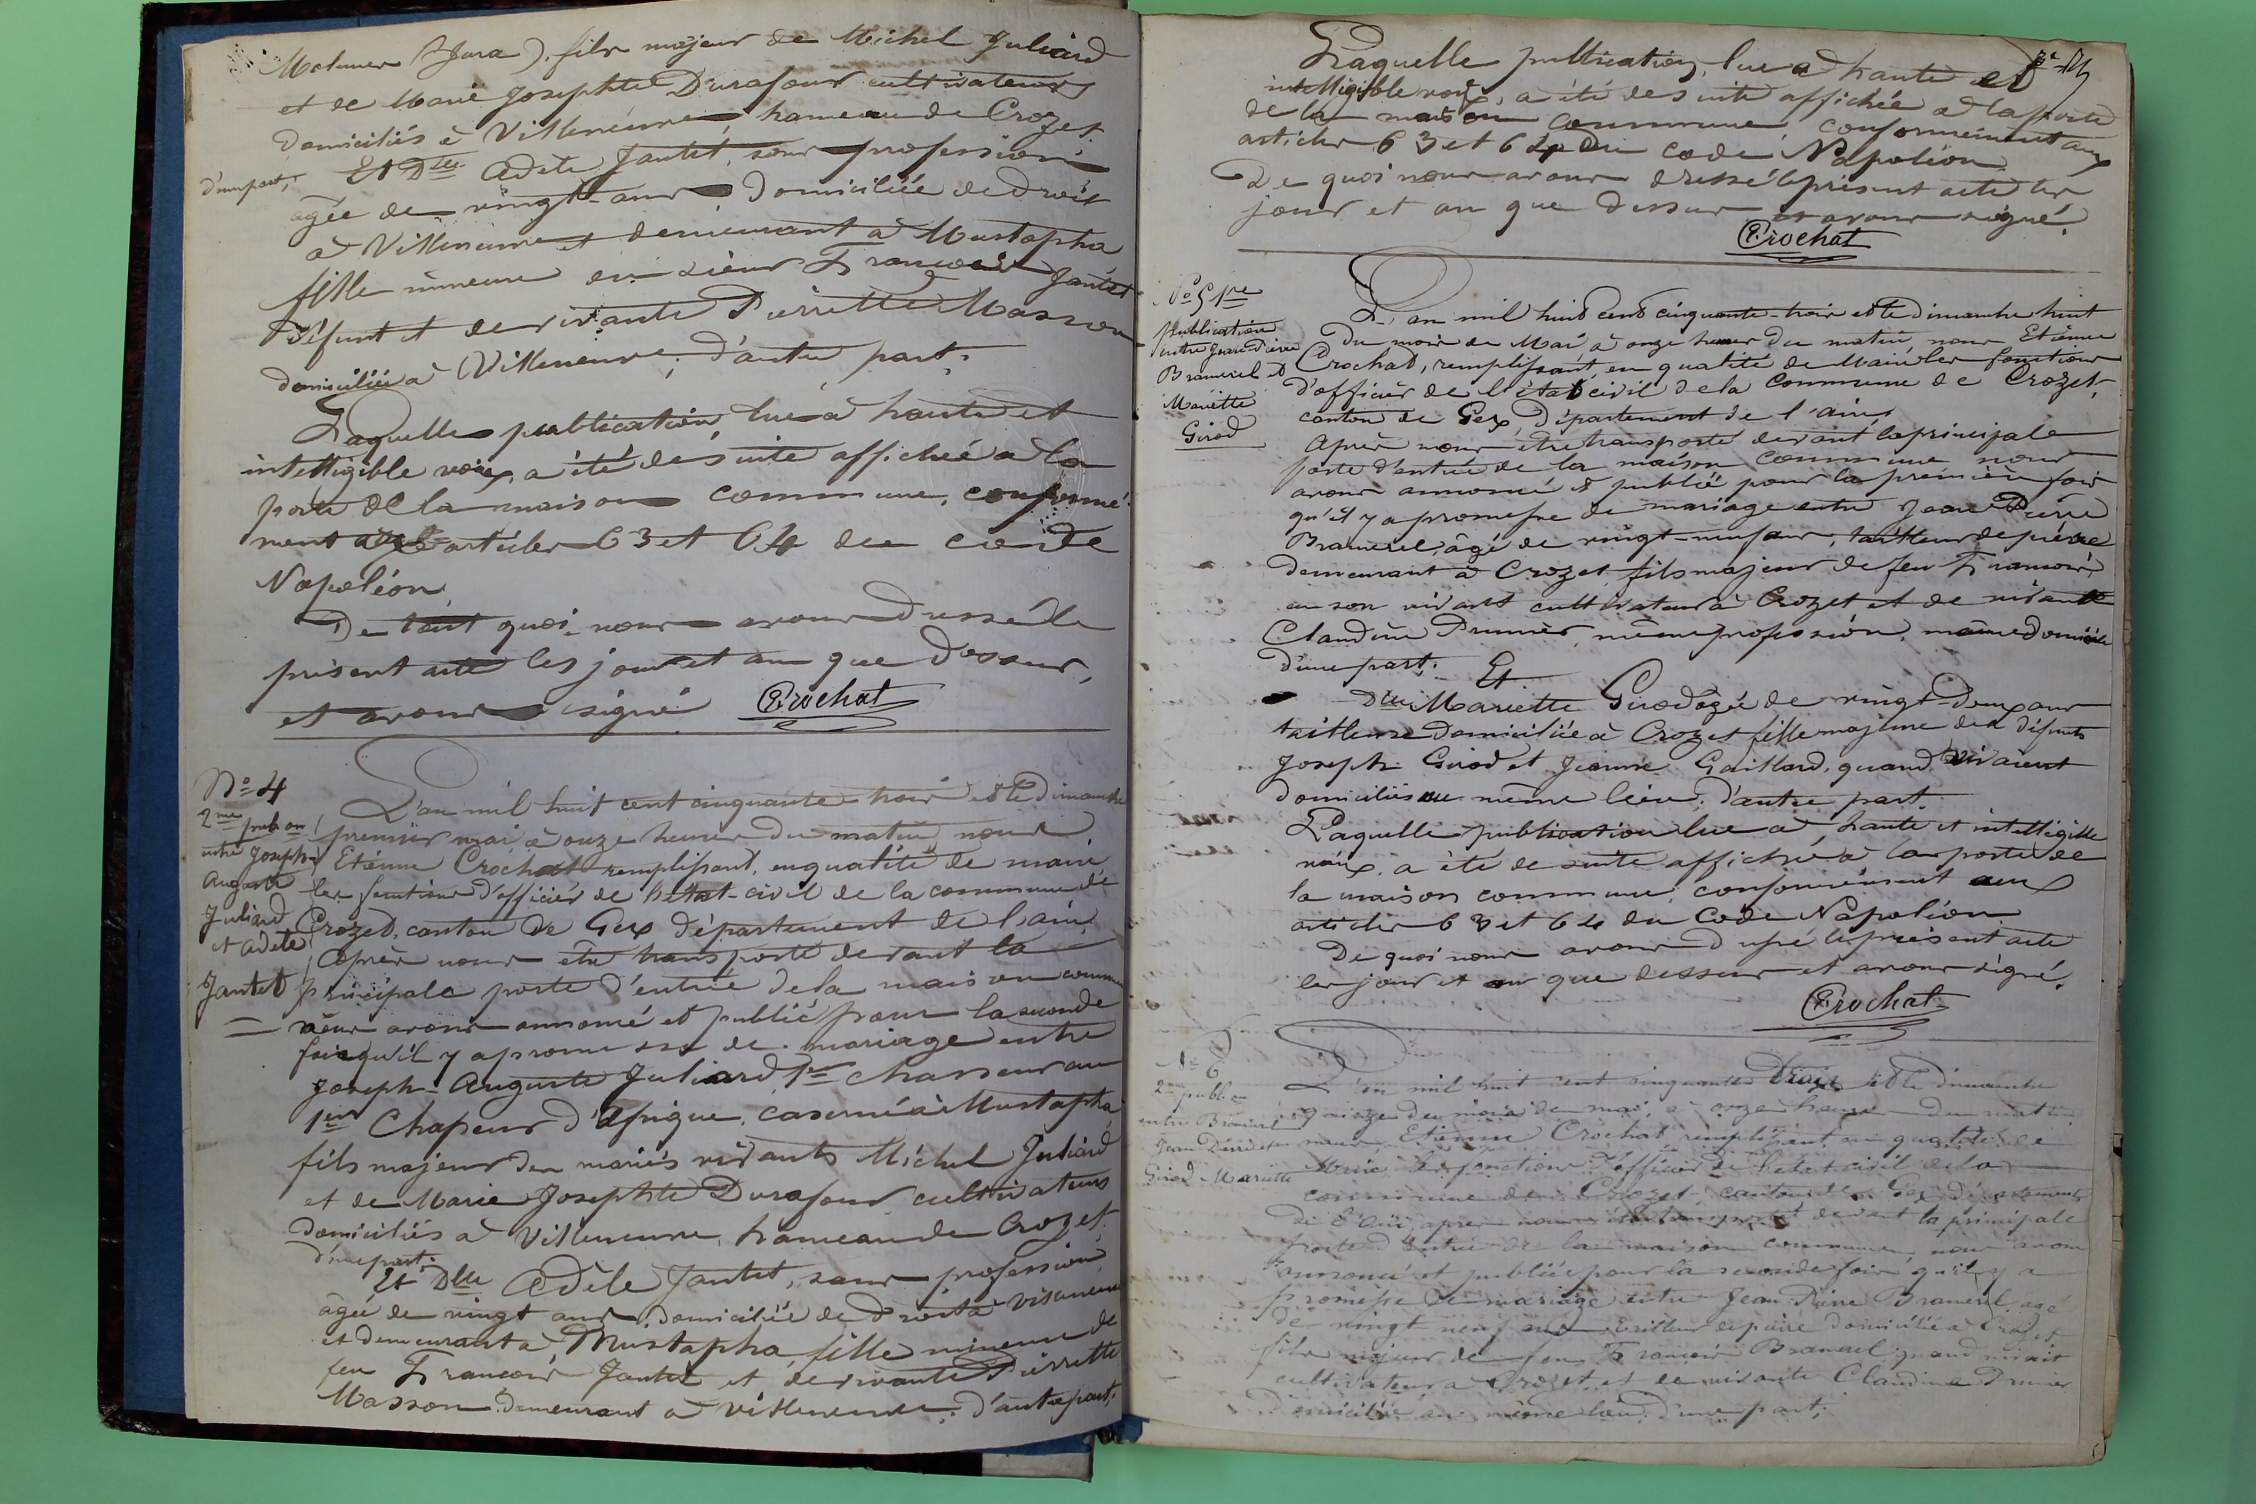 Molunes (Jura), fils majeur de Michel Juliard
et de Marie Josephte Durafour cultivateurs
domiciliés à Villeneuve hameau de Crozet,
d'une part;
Et Dlle Adèle Jantet, sans profession,
âgée de vingt ans, domiciliée de droit
à Villeneuve et demeurant à Mustapha
fille mineure du sieur François Jantet
défunt et de vivante Pierrette Masson
domiciliée à Villeneuve; d'autre part.
Laquelle publication, lue à haute et
intelligible voix, a été de suite affichée à la
porte de la maison commune, conformé-
ment aux articles 63 et 64 du code
Napoléon
De tout quoi nous avons dressé le
présent acte les jour et an que dessus,
et avons signé Crochat
No 4
2me pub on
entre Joseph
Auguste
Juliard
et Adèle
Jantet
L'an mil huit cent cinquante-trois et le dimanche
premier mai à onze heures du matin nous
Etienne Crochat remplissant, en qualité de maire
les fonctions d'officier de l'état-civil de la commune de
Crozet, canton de Gex département de l'ain,
Après nous être transporté devant la
principale porte d'entrée de la maison commune
nous avons annoncé et publié pour la seconde
fois qu'il y a promesse de mariage entre
Joseph-Auguste Juliard chasseur au
1er Chasseurs d'Afrique, caserné à Mustapha
fils majeur des mariés vivants Michel Juliard
et de Marie Josephte Durafour cultivateurs
domiciliés à Villeneuve, hameau de Crozet,
d'une part.
Et Dlle Adèle Jantet, sans profession,
âgée de vingt ans, domiciliée de droit à Villeneuve
et demeurant à Mustapha, fille mineure de
feu François Jantet et de vivante Pierrette
Masson demeurant à Villeneuve; d'autre part.
Laquelle publication, lue à haute et
intelligible voix, a été de suite affichée à la porte
de la maison commune, conformément aux
articles 63 et 64 du code Napoléon
De quoi nous avons dressé le présent acte les
jour et an que dessus et avons signé.
Crochat
No 5 1re
publication
entre Jean Pierre
Bramerel et
Mariette
Girod
L'an mil huit cent cinquante-trois et le dimanche huit
du mois de Mai à onze heures du matin, nous Etienne
Crochat, remplissant, en qualité de Maire les fonctions
d'officier de l'état civil de la Commune de Crozet,
canton de Gex, département de l'ain,
Après nous être transporté devant la principale
porte d'entrée de la maison commune nous
avons annoncé et publié pour la première fois
qu'il y a promesse de mariage entre Jean Pierre
Bramerel, âgé de vingt-neuf ans, tailleur de pierre
demeurant à Crozet, fils majeur de feu François,
en son vivant cultivateur à Crozet et de vivante
Claudine Prunier, même profession, même domicile
d'une part.
Et
Dlle Mariette Girod âgée de vingt-deux ans
tailleuse domiciliée à Crozet fille majeure des défunts
Joseph Girod et Jeanne Gaillard, quand vivaient
domiciliés au même lieu; d'autre part.
Laquelle publication lue à haute et intelligible
voix, a été de suite affichée à la porte de
la maison commune, conformément aux
articles 63 et 64 du Code Napoléon.
De quoi nous avons dressé le présent acte
les jour et an que dessus et avons signé.
Crochat
No 6
2me publ. on
entre Bramerel
Jean Pierre et
Girod Mariette
L'an mil huit cent cinquante trois et le dimanche
quinze du mois de mai, à onze heures du matin
nous Etienne Crochat remplissant en qualité de
Maire les fonctions d'officier de l'état civil de la
commune de Crozet canton de Gex département
de l'Ain, après nous être transporté devant la principale
porte d'entrée de la maison commune, nous avons
annoncé et publié pour la seconde fois qu'il y a
promesse de mariage entre Jean Pierre Bramerel, âgé
de vingt neuf ans tailleur de pierre domicilié à Crozet
fils majeur de feu François Bramerel quand vivait
cultivateur à Crozet, et de vivante Claudine Prunier
domiciliée au même lieu, d'une part;